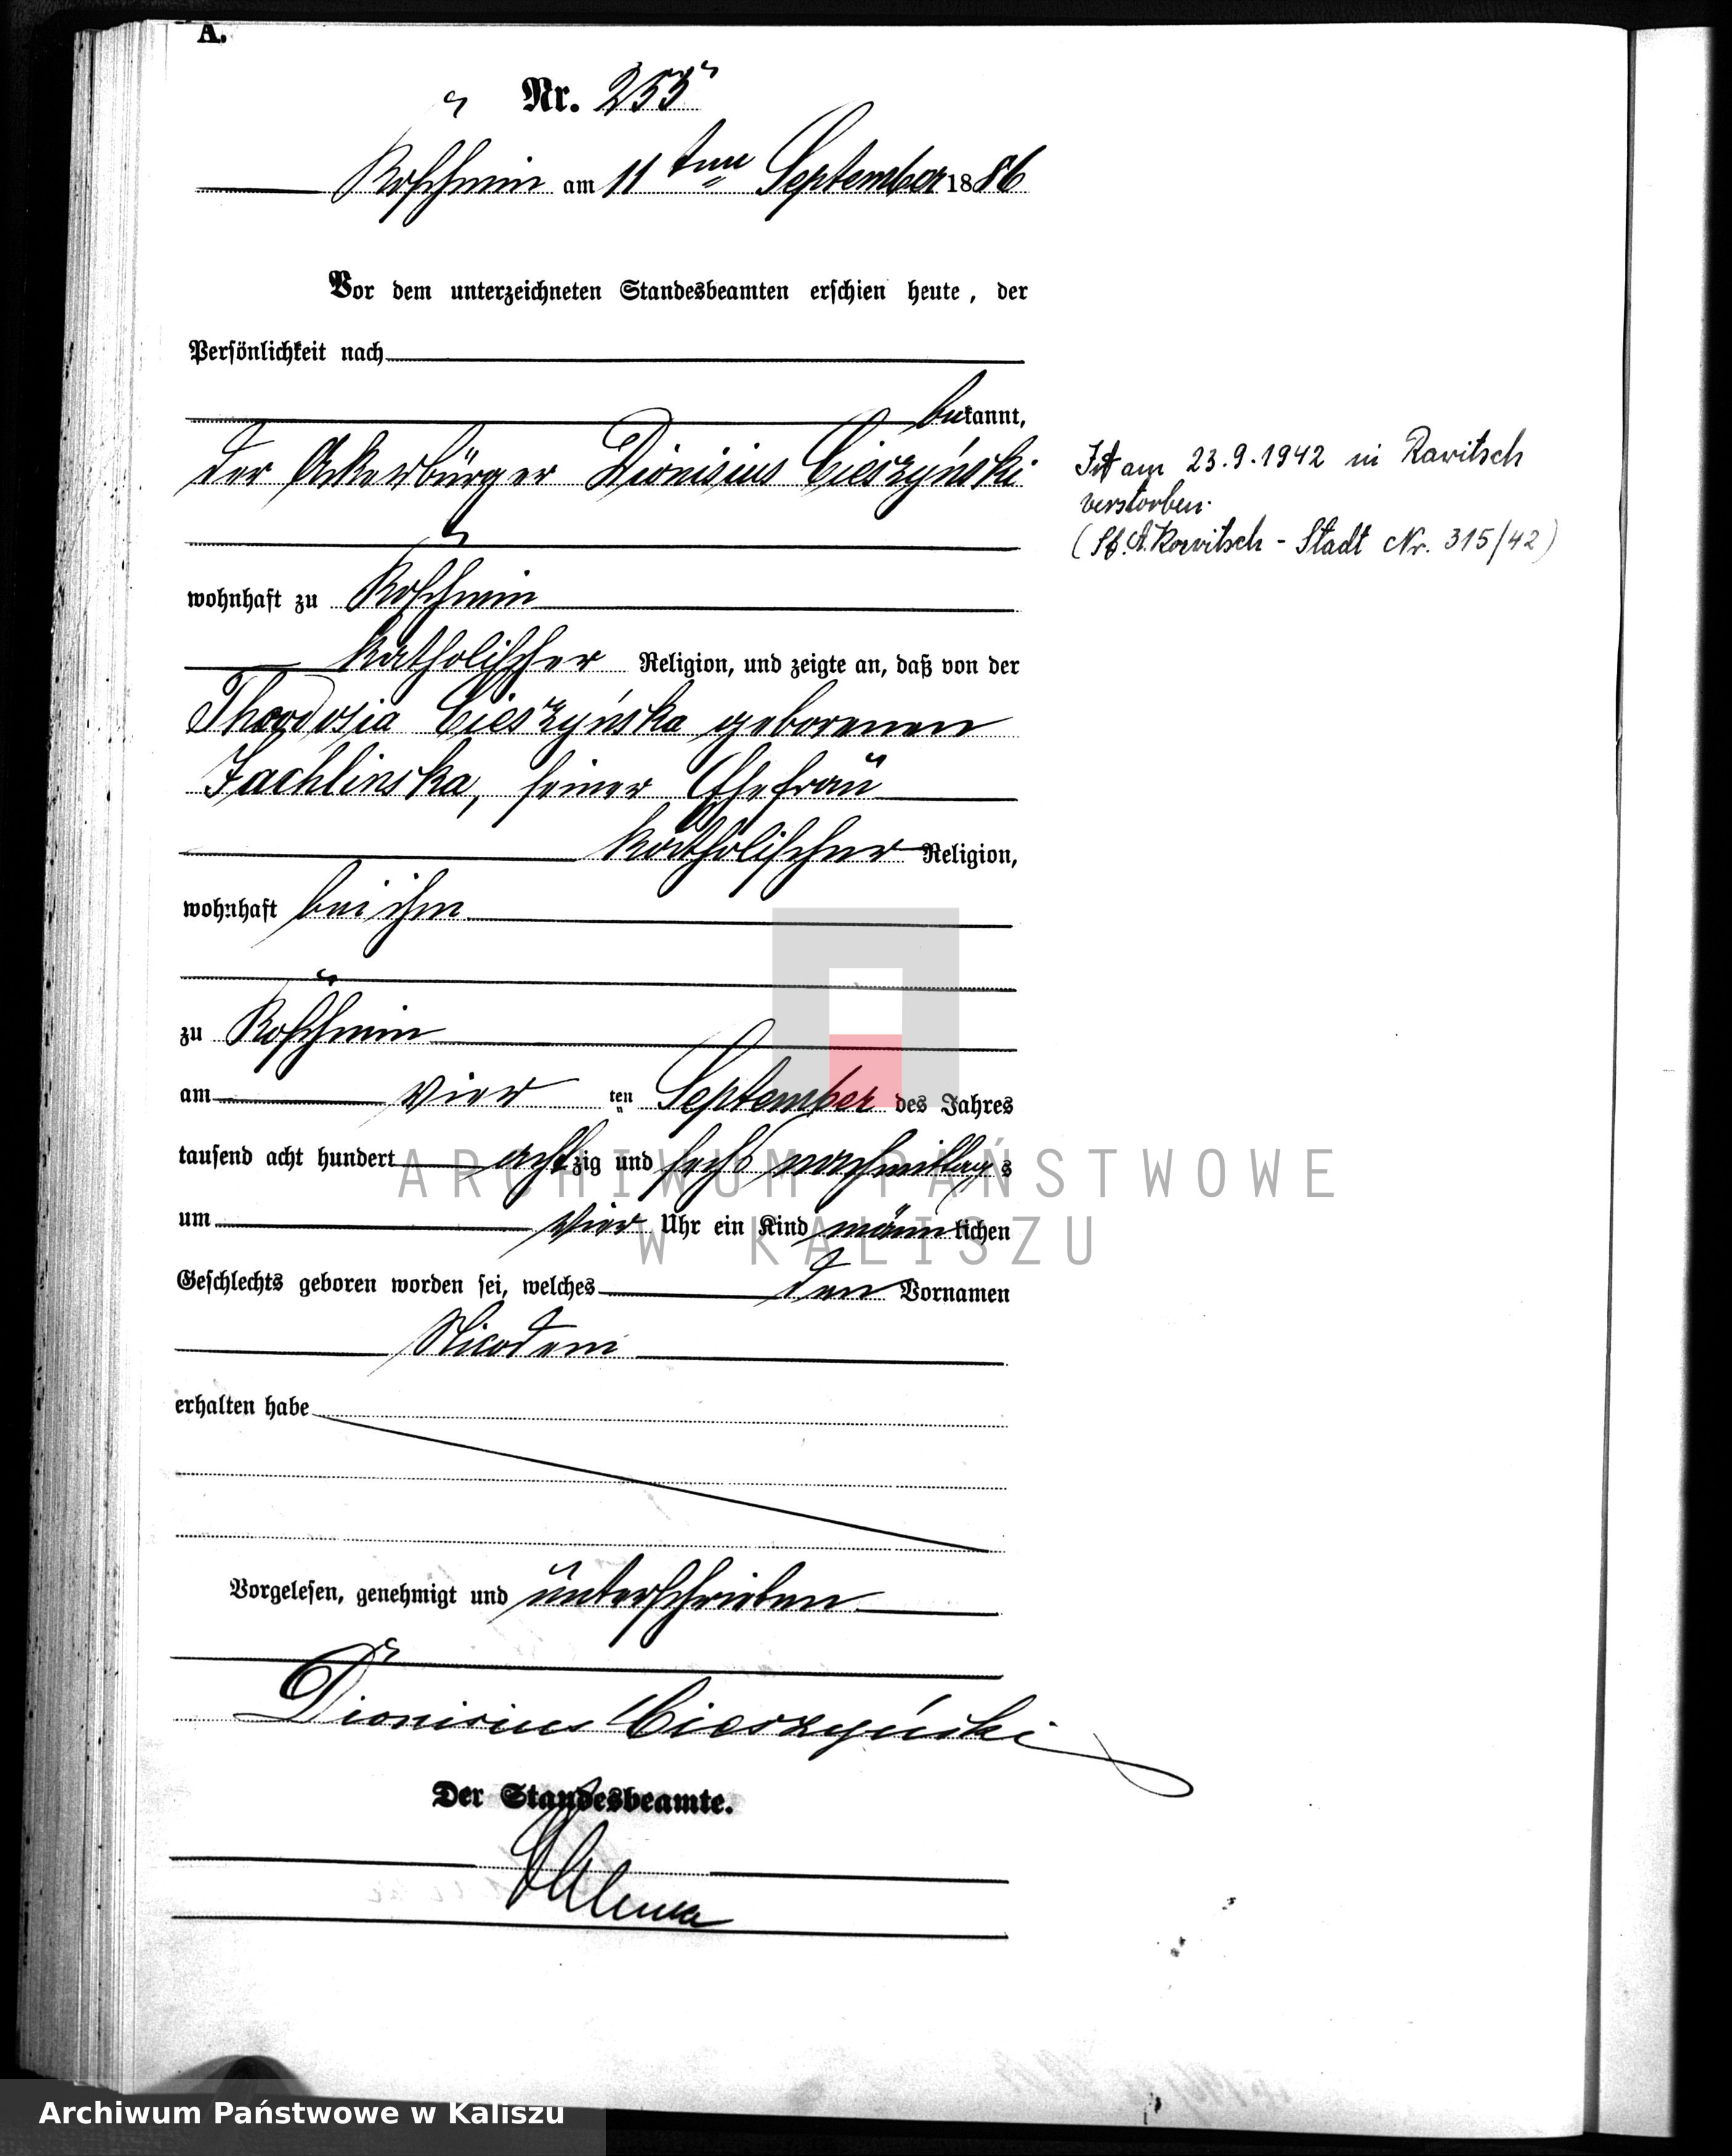 A.
Nr. 255
Koschmin am 11 ten September 1886
Vor dem unterzeichneten Standesbeamten erschien heute, der
Persönlichkeit nach
bekannt,
der Ackerbürger Dionisius Cieszyński
wohnhaft zu Koschmin
katholischer Religion, und zeigte an, daß von der
Theodosia Cieszyńska geborenen
Jachlinska, seiner Ehefrau
katholischer Religion,
wohnhaft bei ihm
zu Koschmin
am vier ten September des Jahres
tausend acht hundert achtzig und sechs nachmittags
um vier Uhr ein Kind männlichen
Geschlechts geboren worden sei, welches den Vornamen
Nicodem
erhalten habe
Vorgelesen, genehmigt und unterschrieben
Dionisius Cieszyński
Der Standesbeamte.
Ist am 23.9.1942 in Rawitsch
verstorben.
(St. A. Rawitsch - Stadt Nr. 315/42)
ARCHIWUM PAŃSTWOWE
W KALISZU
Archiwum Państwowe w Kaliszu